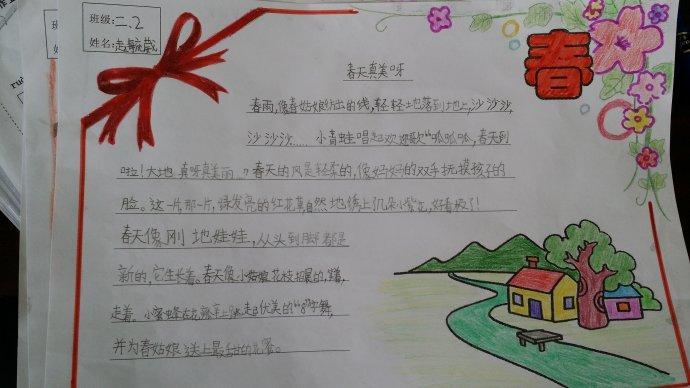 班级:二.2
姓名:
春
春天真美呀
春雨,像春姑娘纺出的线,轻轻地落到地上,沙沙沙,
沙沙沙……小青蛙唱起欢迎歌"呱呱呱,春天到
啦!大地真呀真美丽。"春天的风是轻柔的,像妈妈的双手抚摸孩子的
脸。这一片,那一片,绿发亮的红花草自然地绣上几朵小紫花,好看极了!
春天像刚地娃娃,从头到脚都是
新的,它生长着。春天像小姑娘花枝招展的,笑着,
走着。小蜜蜂在花瓣上跳起优美的"8"字舞,
并为春姑娘送上最甜的花蜜。